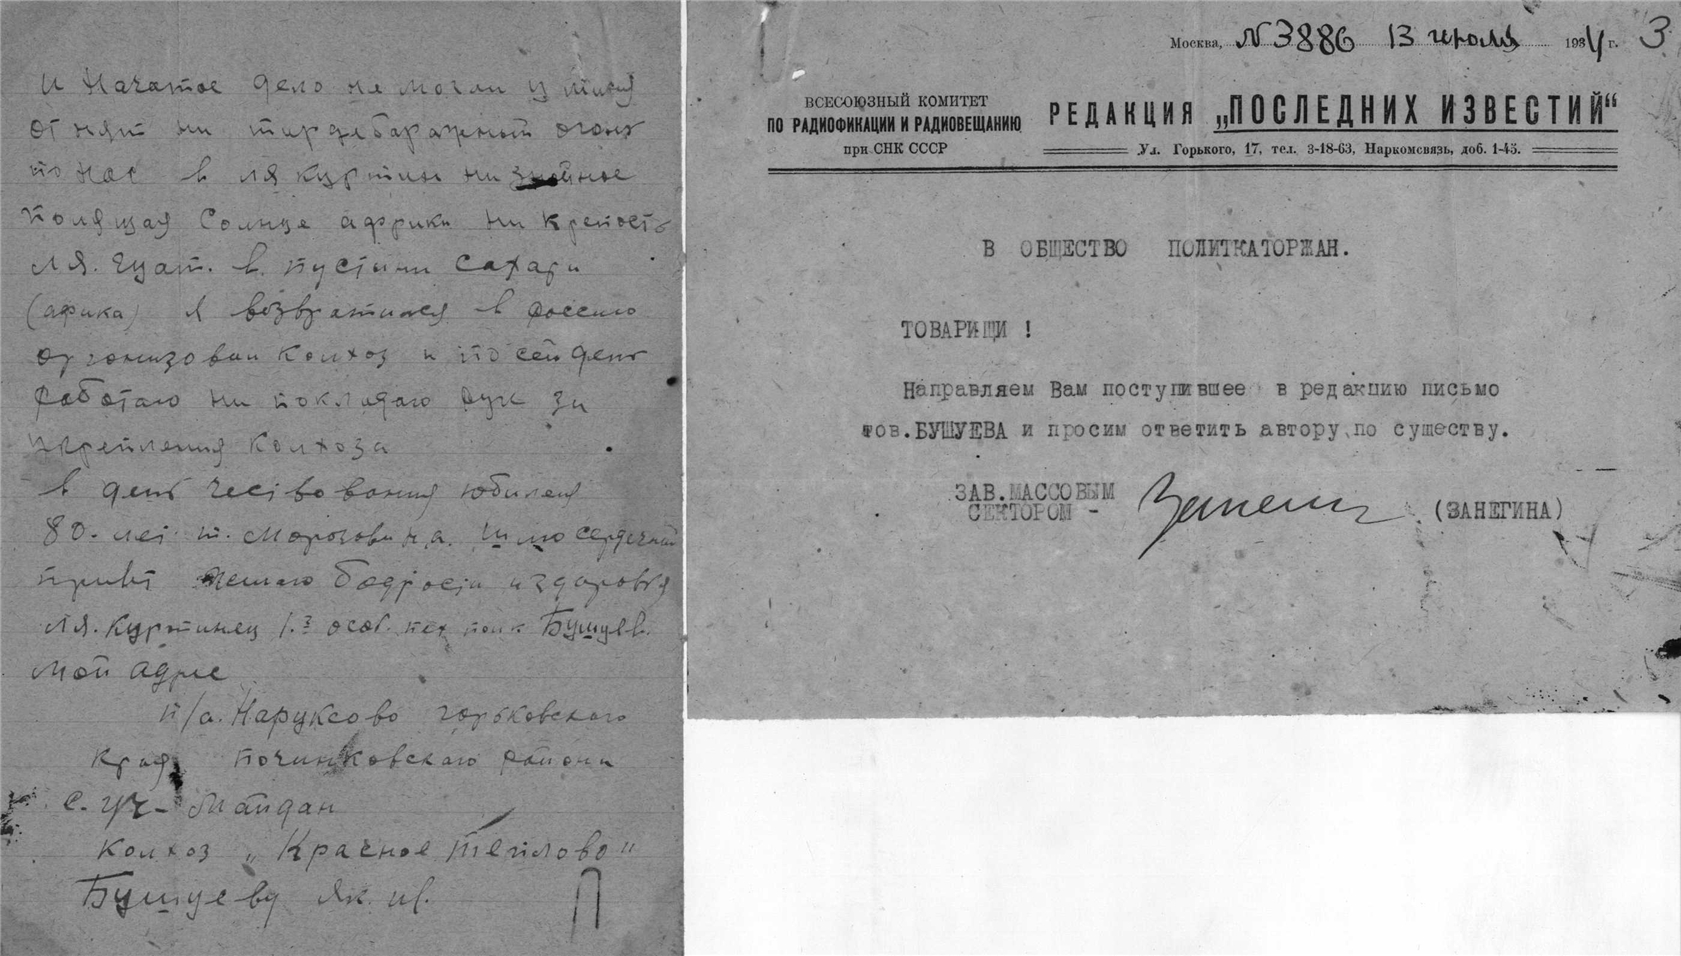 и начатое дело не могли у меня
отнят ни
по нас в ля куртин ни знойное
полящая солнце африки ни крепость
Ля. Гуат. в. пустыни сахари
(африка) я возвратился в россию
организовал колхоз и по сей день
работаю ни покладаю рук за
укрепления колхоза
в день чествования юбилея
80. лет. т. Морозовина. шлю сердечный
привт желаю бодрости и здоровья
Ля. Куртинец 1.й особ. пех полк Бушуев.
мой адрес
п/о. Наруксово горьковского
края починковского района
с. Уч- Майдан
колхоз „Красное Теплово"
Бушуеву Як. ив.
Москва, № 3886 13 июля 1934 г. 3
ВСЕСОЮЗНЫЙ КОМИТЕТ
ПО РАДИОФИКАЦИИ И РАДИОВЕЩАНИЮ
при СНК СССР
РЕДАКЦИЯ „ПОСЛЕДНИХ ИЗВЕСТИЙ“
Ул. Горького, 17, тел. 3-18-63, Наркомсвязь, доб. 1-45.
В ОБЩЕСТВО ПОЛИТКАТОРЖАН.
ТОВАРИЩИ !
Направляем Вам поступившее в редакцию письмо
тов.БУШУЕВА и просим ответить автору по существу.
ЗАВ.МАССОВЫМ
СЕКТОРОМ - (ЗАНЕГИНА)